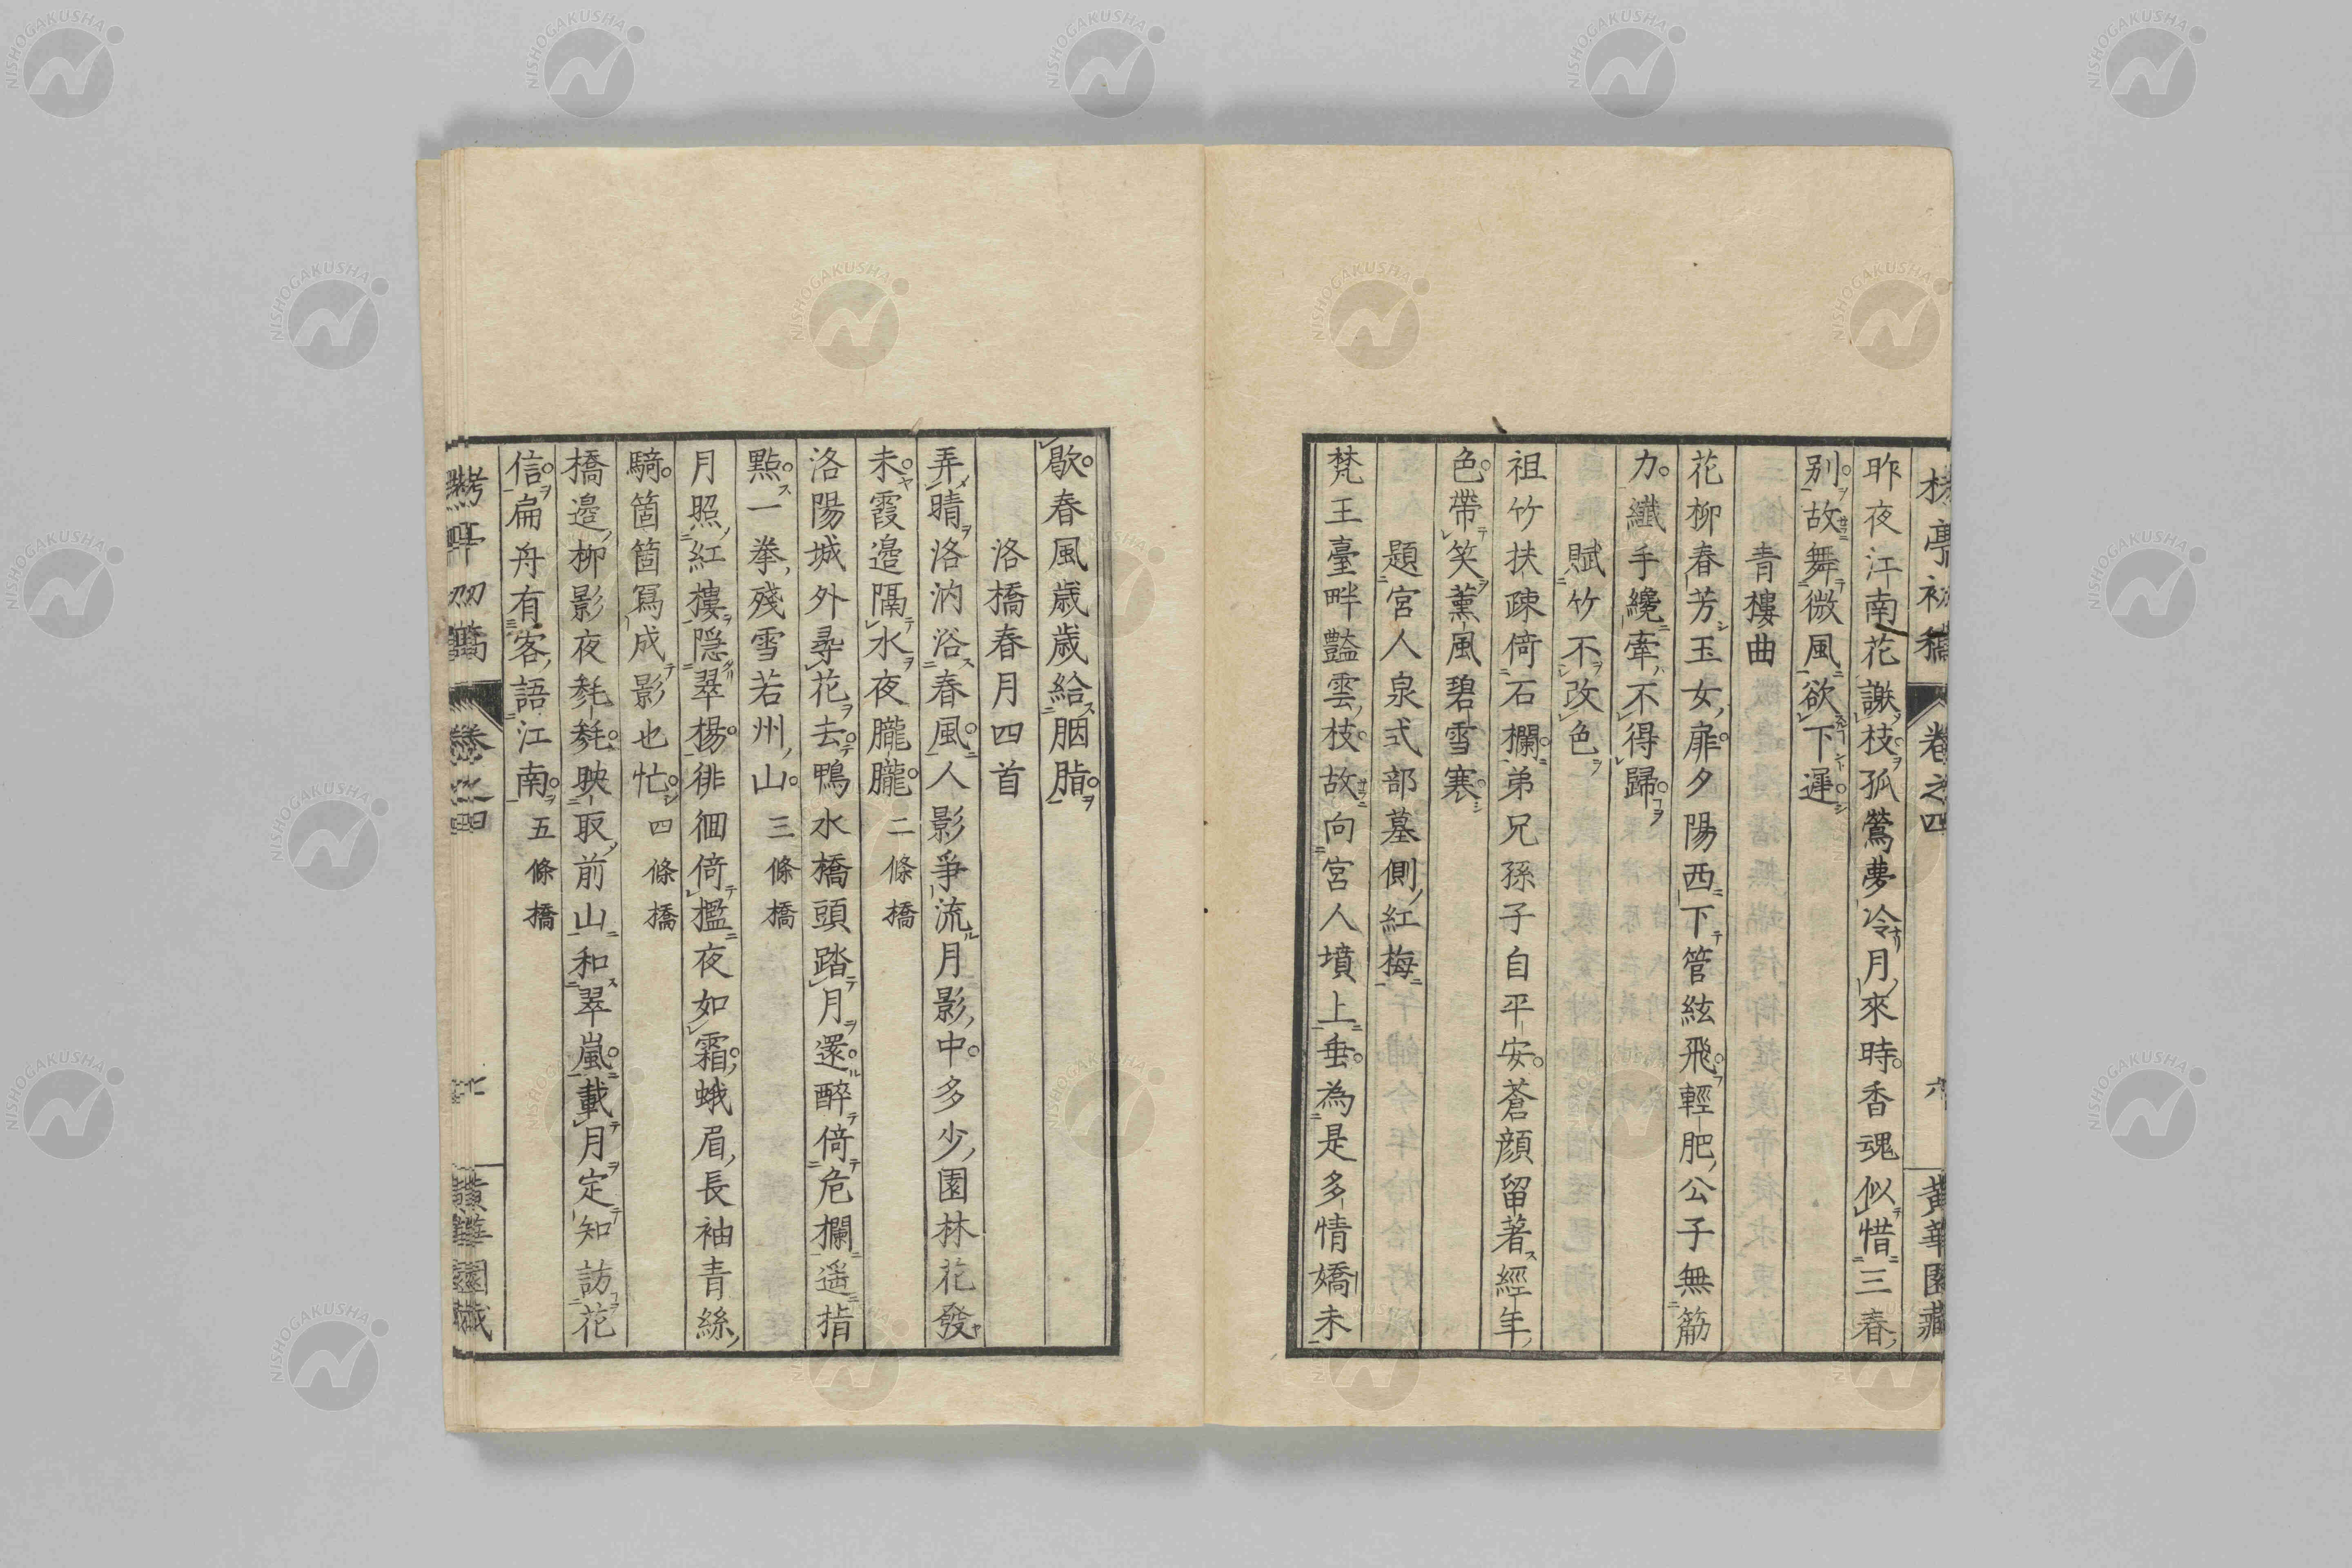 昨夜江南花謝枝孤鶯夢冷月來時香魂似惜三春
別故舞微風欲下遲
青樓曲
花柳春芳玉女扉夕陽西下管絃飛輕肥公子無筋
力纖手纔牽不得歸
賦竹不改色
祖竹扶疎倚石欄弟兄孫子自平安蒼顔留著經年
色帶笑薰風碧雪寒
題宮人泉式部墓側紅梅
梵王臺畔豔雲枝故向宮人墳上垂為是多情嬌未
歇春風歳歳給胭脂
洛橋春月四首
弄晴洛汭浴春風人影爭流月影中多少園林花發
未霞邉隔水夜朧朧 二條橋
洛陽城外尋花去鴨水橋頭踏月還醉倚危欄遥指
點一拳殘雪若州山 三條橋
月照紅樓隠翠楊徘徊倚檻夜如霜蛾眉長袖青絲
騎箇箇寫成影也忙 四條橋
橋邉柳影夜毿毿映取前山和翠嵐載月定知訪花
信扁舟有客語江南 五條橋
卷之四
黄華園藏
NISHOGAKUSHA